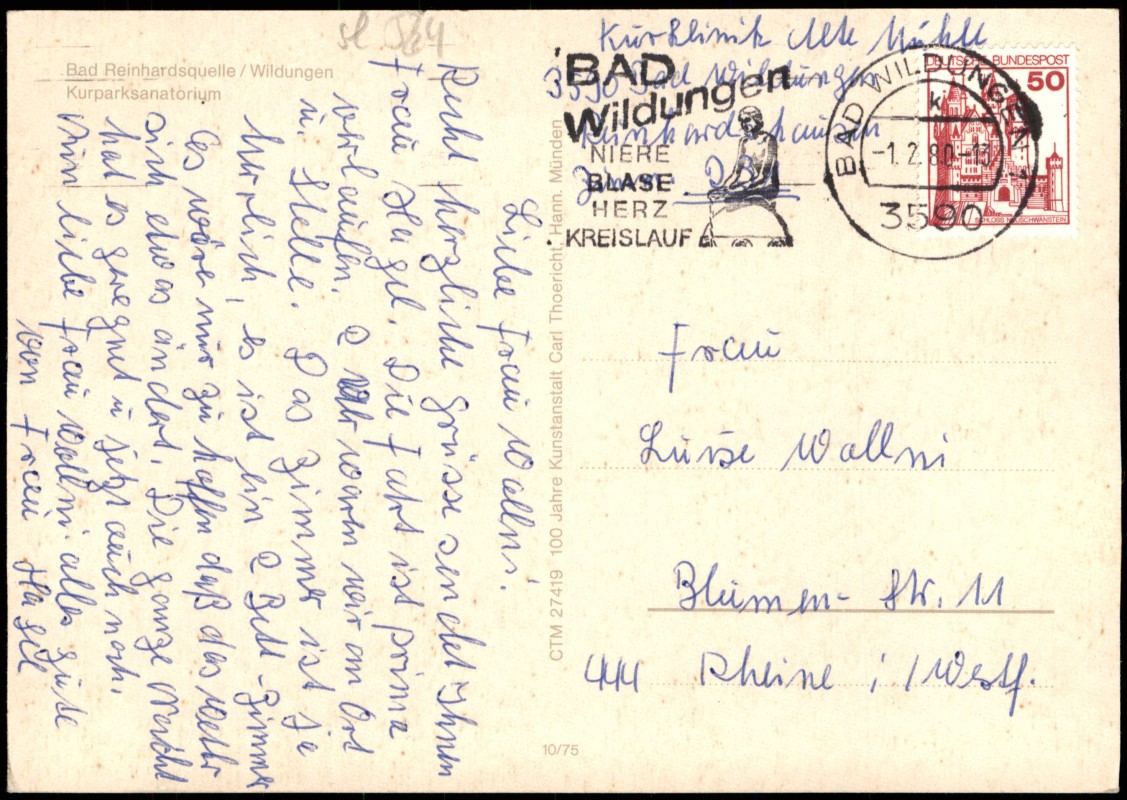 Bad Reinhardsquelle / Wildungen
Kurparksanatorium
Liebe Frau Wallni.
Recht herzliche Grüsse sendet Ihnen
Frau Hagel. Die Fahrt ist prima
verlaufen. 2 Uhr waren wir an Ort
u. Stelle. Das Zimmer ist ja
herrlich, es ist ein 2 Bett-Zimmer
Es wäre nur zu hoffen daß das Wettr
sich etwas ändert. Die ganze Nacht
hat es geregnet u jetzt auch noch.
Nun liebe Frau Wallni alles gute
von Frau Hagel
CTM 27419 100 Jahre Kunstanstalt Carl Thoericht, Hann. Münden
10/75
Kurklinik Alte Mühle
3590 Bad Wildungen
Reinhardshausen
BAD
Wildungen
NIERE
BLASE
HERZ
KREISLAUF
BAD WILDUNGEN 1
k
-1.2.80.-13
3590
DEUTSCHE BUNDESPOST
50
SCHLOSS NEUSCHWANSTEIN
Frau
Luise Wallni
Blumen- Str. 11
44 Rheine i /Westf.